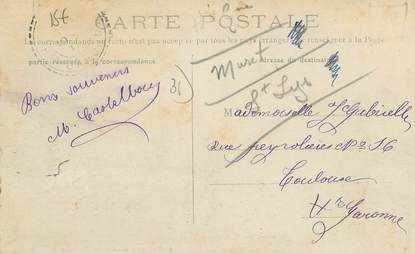 15€
CARTE POSTALE
La correspondance au recto n'est pas acceptée par tous les pays étrangers, se renseigner à la Poste
partie réservée à la correspondance
adresse du destinataire
31
Muret
St Lys
Bons souvenirs
M. Castelbou
Mademoiselle J. Gabrielle
Rue Peyrolières No 36
Toulouse
Hte Garonne